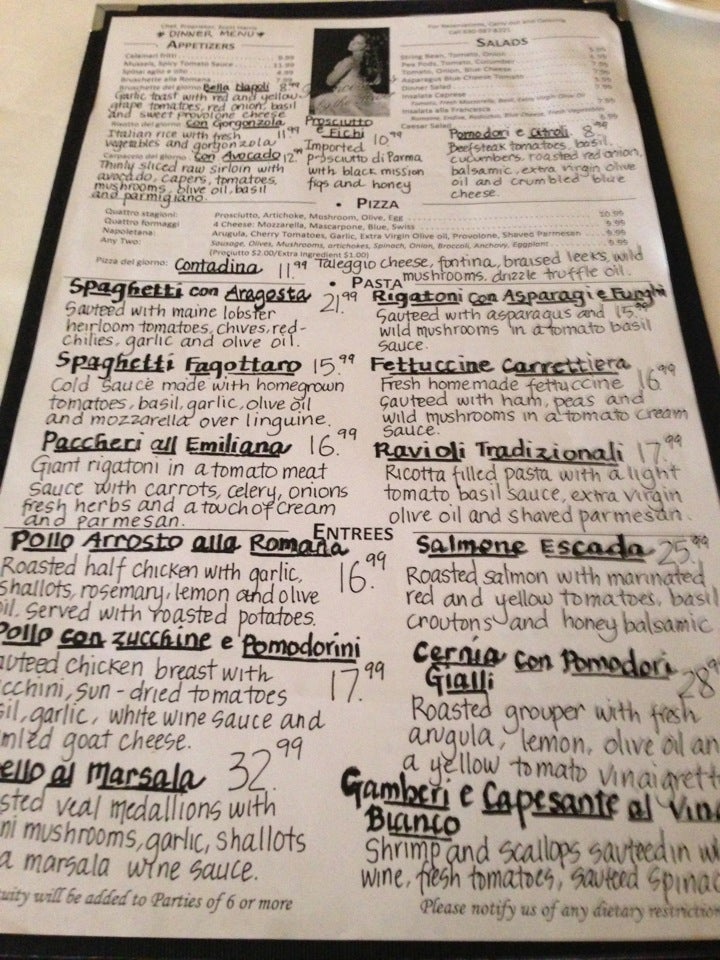 Chef, Proprietor, Scott Harris
* DINNER MENU *
APPETIZERS
Calamari fritti 9.99
Mussels, Spicy Tomato Sauce 11.99
Spinaci aglio e olio 4.99
Bruschette alla Romana 7.99
Bruschette del giorno Bella Napoli 8.99
Garlic toast with red and yellow
grape tomatoes, red onion, basil
and sweet provolone cheese
Risotto del giorno con Gorgonzola
Italian rice with fresh 11.99
vegetables and gorgonzola
Carpaccio del giorno con Avocado 12.99
Thinly sliced raw sirloin with
avocado, capers, tomatoes,
mushrooms, olive oil, basil
and parmigiano.
Prosciutto
e Fichi 10.99
Imported
prosciutto di Parma
with black mission
figs and honey
For Reservations, Carry out and Catering
SALADS
String Bean, Tomato, Onion
Pea Pods, Tomato, Cucumber
Tomato, Onion, Blue Cheese
Asparagus Blue Cheese Tomato
Dinner Salad
Insalata Caprese
Tomato, Fresh Mozzarella, Basil, Extra Virgin Olive Oil
Insalata alla Francesca
Romaine, Endive, Radicchio, Blue Cheese, Fresh Vegetables
Caesar Salad
Pomodori e Citroli 8.
Beefsteak tomatoes, basil,
cucumbers, roasted red onion,
balsamic, extra virgin olive
oil and crumbled blue
cheese.
• PIZZA
Quattro stagioni: Prosciutto, Artichoke, Mushroom, Olive, Egg 10.99
Quattro formaggi 4 Cheese: Mozzarella, Mascarpone, Blue, Swiss 9.99
Napoletana: Arugula, Cherry Tomatoes, Garlic, Extra Virgin Olive oil, Provolone, Shaved Parmesan 9.99
Any Two: Sausage, Olives, Mushrooms, artichokes, Spinach, Onion, Broccoli, Anchovy, Eggplant 9.99
(Prociutto $2.00/Extra Ingredient $1.00)
Pizza del giorno: Contadina 11.99 Taleggio cheese, fontina, braised leeks, wild
mushrooms, drizzle truffle oil.
• PASTA
Spaghetti con Aragosta 21.99
Sauteed with maine lobster
heirloom tomatoes, chives, red-
chilies, garlic and olive oil.
Spaghetti Fagottaro 15.99
Cold sauce made with homegrown
tomatoes, basil, garlic, olive oil
and mozzarella over linguine.
Paccheri all Emiliana 16.99
Giant rigatoni in a tomato meat
sauce with carrots, celery, onions
fresh herbs and a touch of cream
and parmesan.
Rigatoni con Asparagi e Funghi
Sauteed with asparagus and 15.99
wild mushrooms in a tomato basil
sauce.
Fettuccine Carrettiera 16.99
Fresh homemade fettuccine
sauteed with ham, peas and
wild mushrooms in a tomato cream
sauce.
Ravioli Tradizionali 17.99
Ricotta filled pasta with a light
tomato basil sauce, extra virgin
olive oil and shaved parmesan.
ENTREES
Pollo Arrosto alla Romana
Roasted half chicken with garlic, 16.99
shallots, rosemary, lemon and olive
oil, served with roasted potatoes.
Pollo con zucchine e Pomodorini
auteed chicken breast with 17.99
cchini, sun-dried tomatoes
sil, garlic, white wine sauce and
mled goat cheese.
ello al Marsala 32.99
sted veal medallions with
ni mushrooms, garlic, shallots
a marsala wine sauce.
Salmone Escada 25.99
Roasted salmon with marinated
red and yellow tomatoes, basil
croutons and honey balsamic
Cernia con Pomodori
Gialli 28.99
Roasted grouper with fresh
arugula, lemon, olive oil an
a yellow tomato vinaigrett
Gamberi e Capesante al Vin
Bianco
Shrimp and scallops sauteed in wh
wine, fresh tomatoes, sauteed spinac
tuity will be added to Parties of 6 or more
Please notify us of any dietary restriction